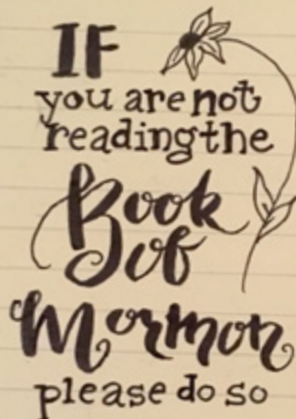 IF
you are not
reading the
Book
of
Mormon
please do so